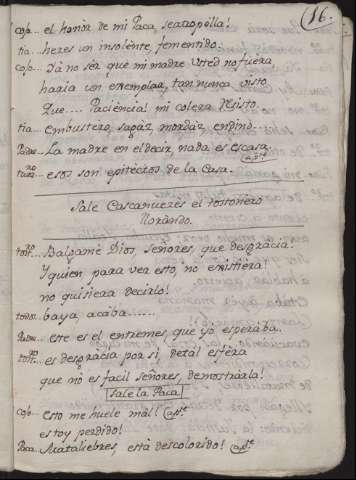 16.
cos... el honòr de mi Paca, se atropélla!
tia... heres un insolénte, fementido.
cos... Yà no ser que mi madre Usted no fuera,
haria un exemplar, tan nunca visto
Que.... Paciència! mi colera resisto.
tia... Embustero, sagàz, mordàz, endino.
Padre... La madre en el decir, nada es escasa.
apte
esos son epitectos de la Casa.
Sale Cascanueces el tostonero
llorando.
tostº... Balgamè Dios, Señores, que desgracia!
Y quien para ver esto, no existiera!
no quisiera decirlo!
todos... baya, acaba......
Padre... este es el entremes, que yo esperaba.
tostº... es desgracia por si, de tal esfera
que no es facil señores, demostrarla!
Sale la Paca
cos... esto me huele mál! apte
estoy perdido!
Paca... Mataliebres, està descolorido! apte